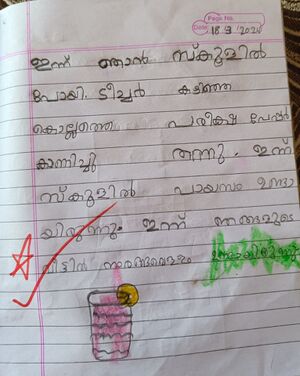 Page No.
Date: 18 3 2024
ഇന്ന് ഞാൻ സ്കൂളിൽ
പോയി. ടീച്ചർ കഴിഞ്ഞ
കൊല്ലത്തെ പരീക്ഷ പേപ്പർ
കാണിച്ചു തന്നു. ഇന്ന്
സ്കൂളിൽ പായസം ഉണ്ടാ
യിരുന്നു. ഇന്ന് ഞങ്ങളുടെ
വീട്ടിൽ നാരങ്ങവെള്ളം ഉണ്ടായിരുന്നു